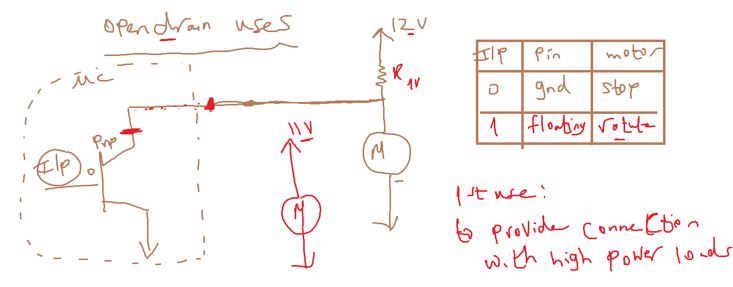 opendrain uses
12V
µc
R 1V
Pnp
I/p 0
11V
M
M
I/p pin motor
0 gnd stop
1 floating rotate
1st use:
to provide connection
with high power loads